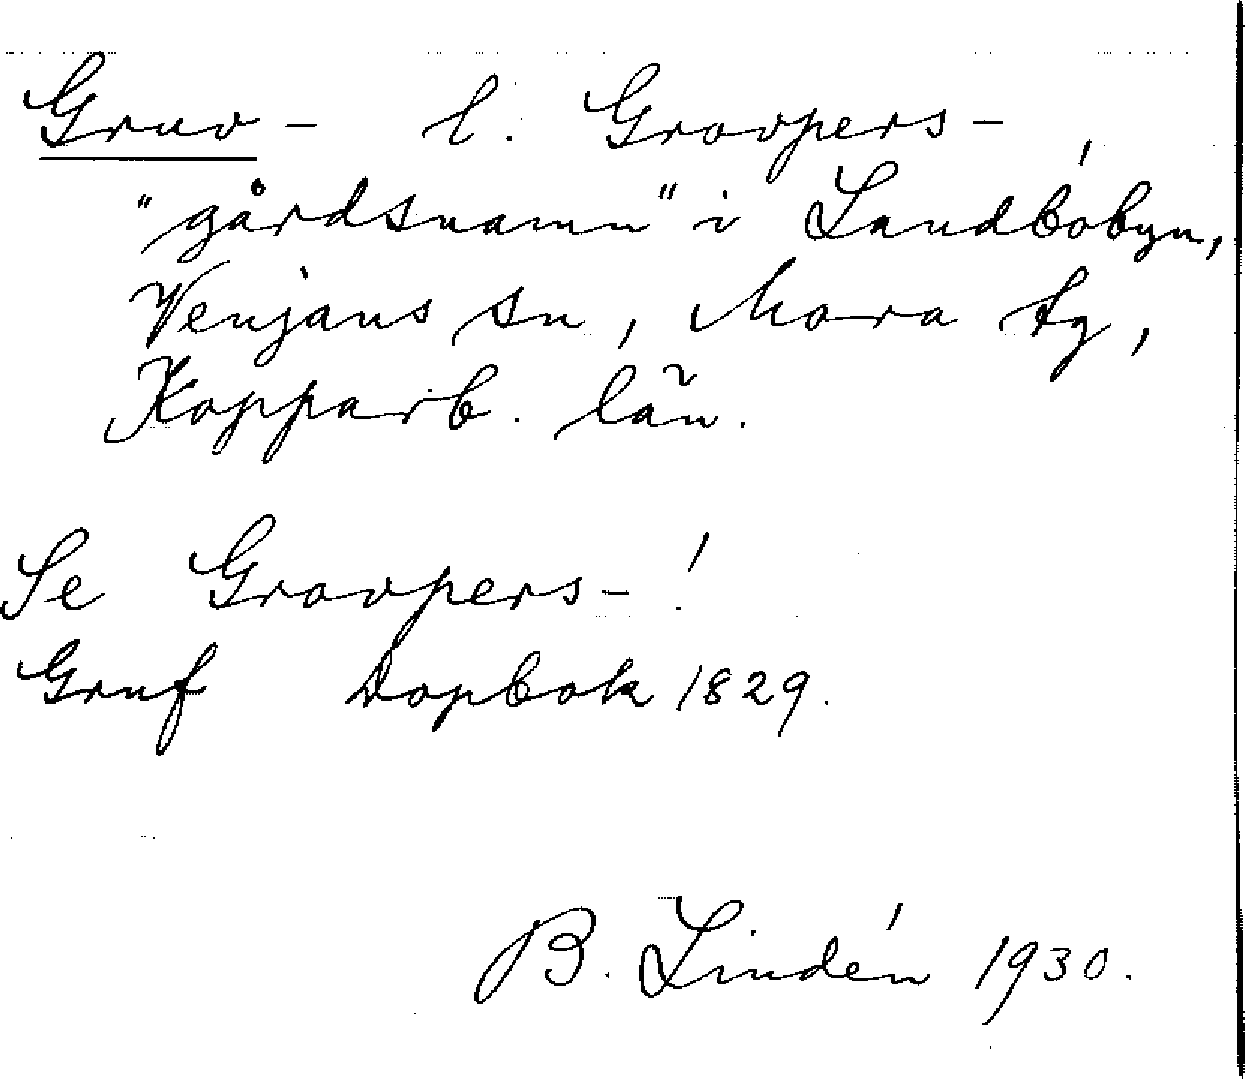 Gruv- l. Grovpers-
"gårdsnamn" i Landbóbyn,
Venjans sn, Mora tg,
Kopparb. län.
Se Grovpers-!
Gruf Dopbok 1829.
B. Lindén 1930.